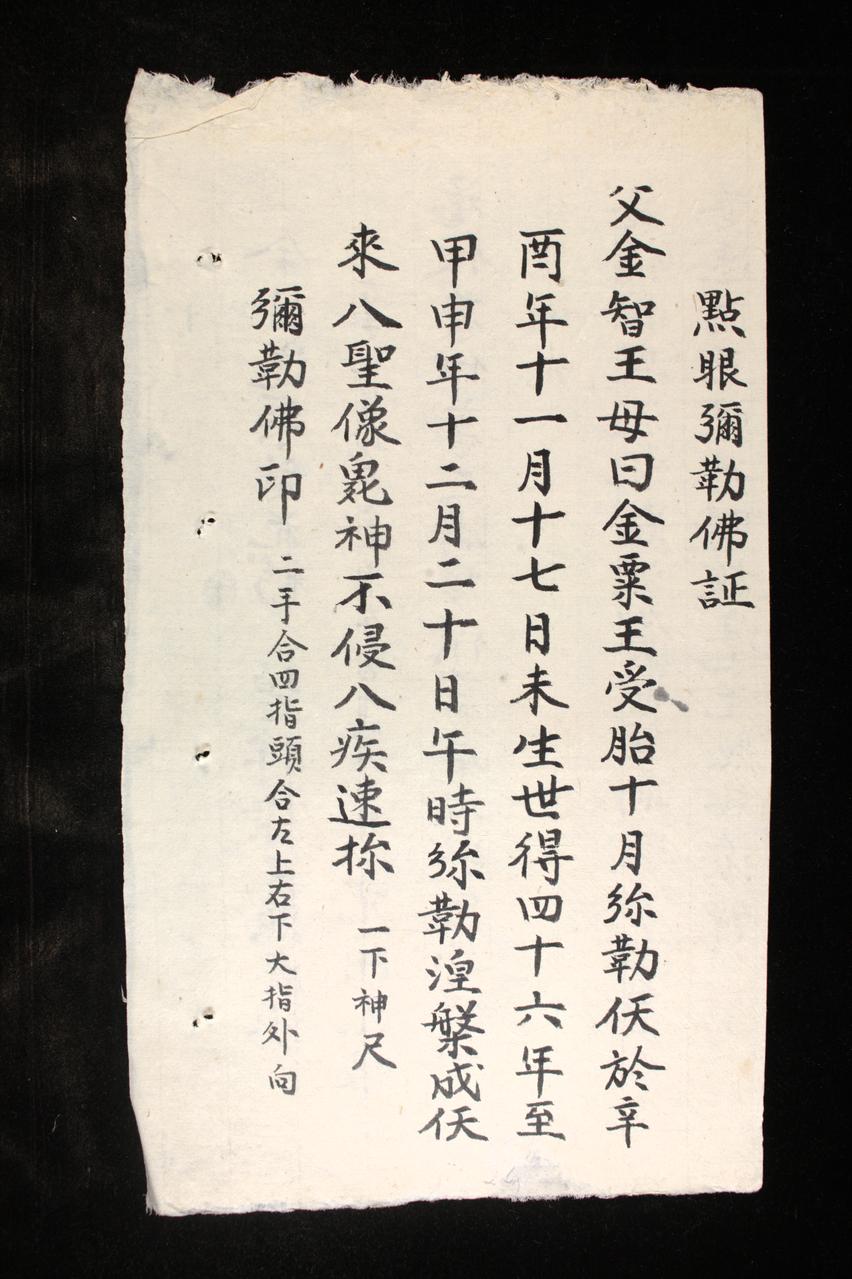 點眼彌勒佛証
父金智王母曰金粟王受胎十月弥勒仸於辛
酉年十一月十七日未生世得四十六年至
甲申年十二月二十日午時弥勒湼槃成仸
來八聖像鬼神不侵八疾速
一下神尺
彌勒佛印 二手合四指頭合左上右下大指外向